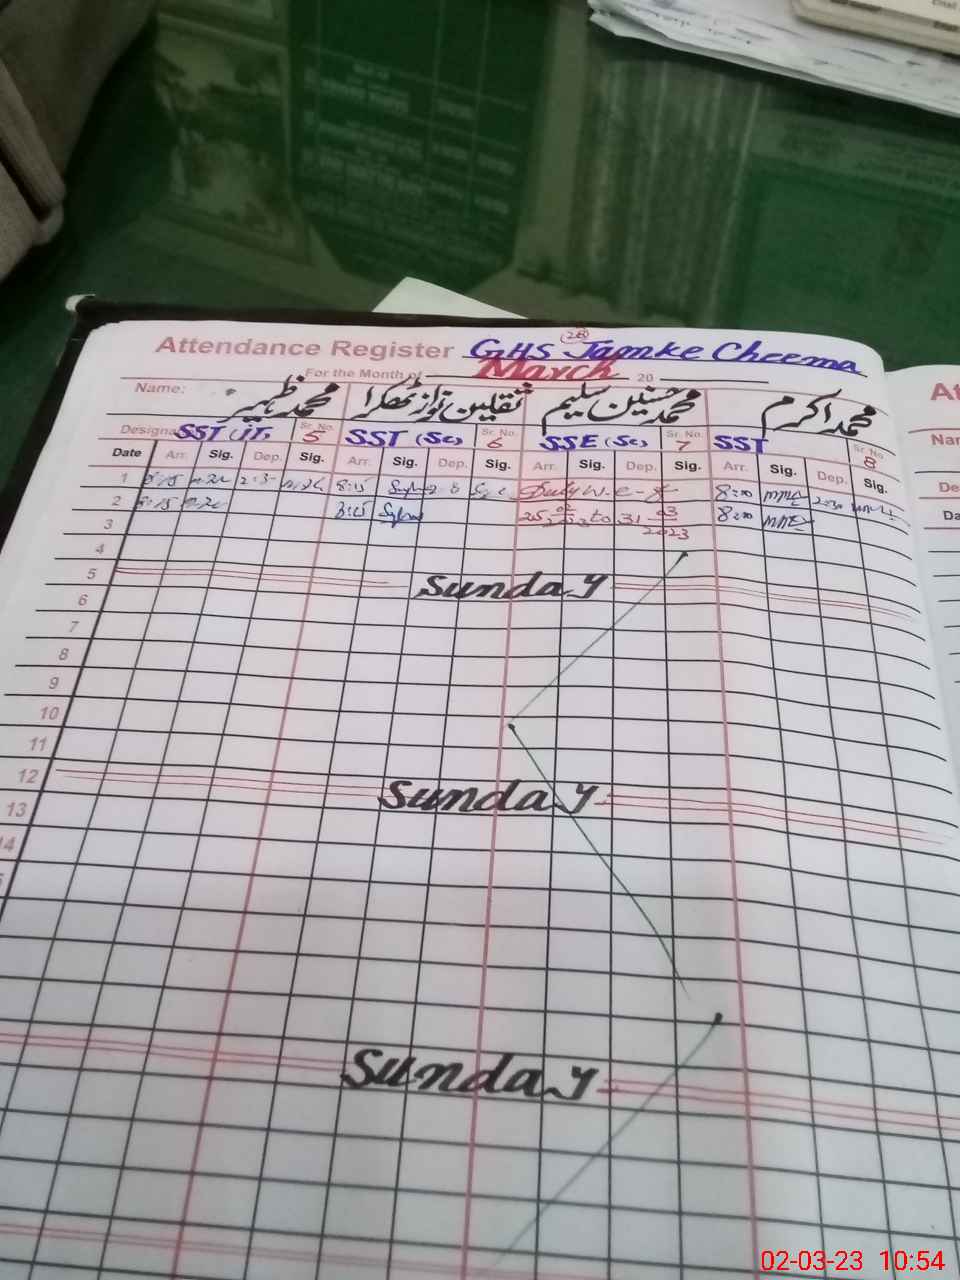 Attendance Register GHS Jamke Cheema
For the Month of March 20
Name: محمد ظہیر ثقلین نواز ٹھکرا محمد حسنین سلیم محمد اکرم
SST (IT) Sr. No. 5 SST (Sc) Sr. No. 6 SSE (Sc) Sr. No. 7 SST Sr. No. 8
Date Arr. Sig. Dep. Sig. Arr. Sig. Dep. Sig. Arr. Sig. Dep. Sig. Arr. Sig. Dep. Sig.
1 8:15 8:15 Duty w-e-f 8:00
2 8:15 8:15 to 31 03 2023 8:00
3
4
5 Sunday
6
7
8
9
10
11
12 Sunday
13
14
Sunday
02-03-23 10:54